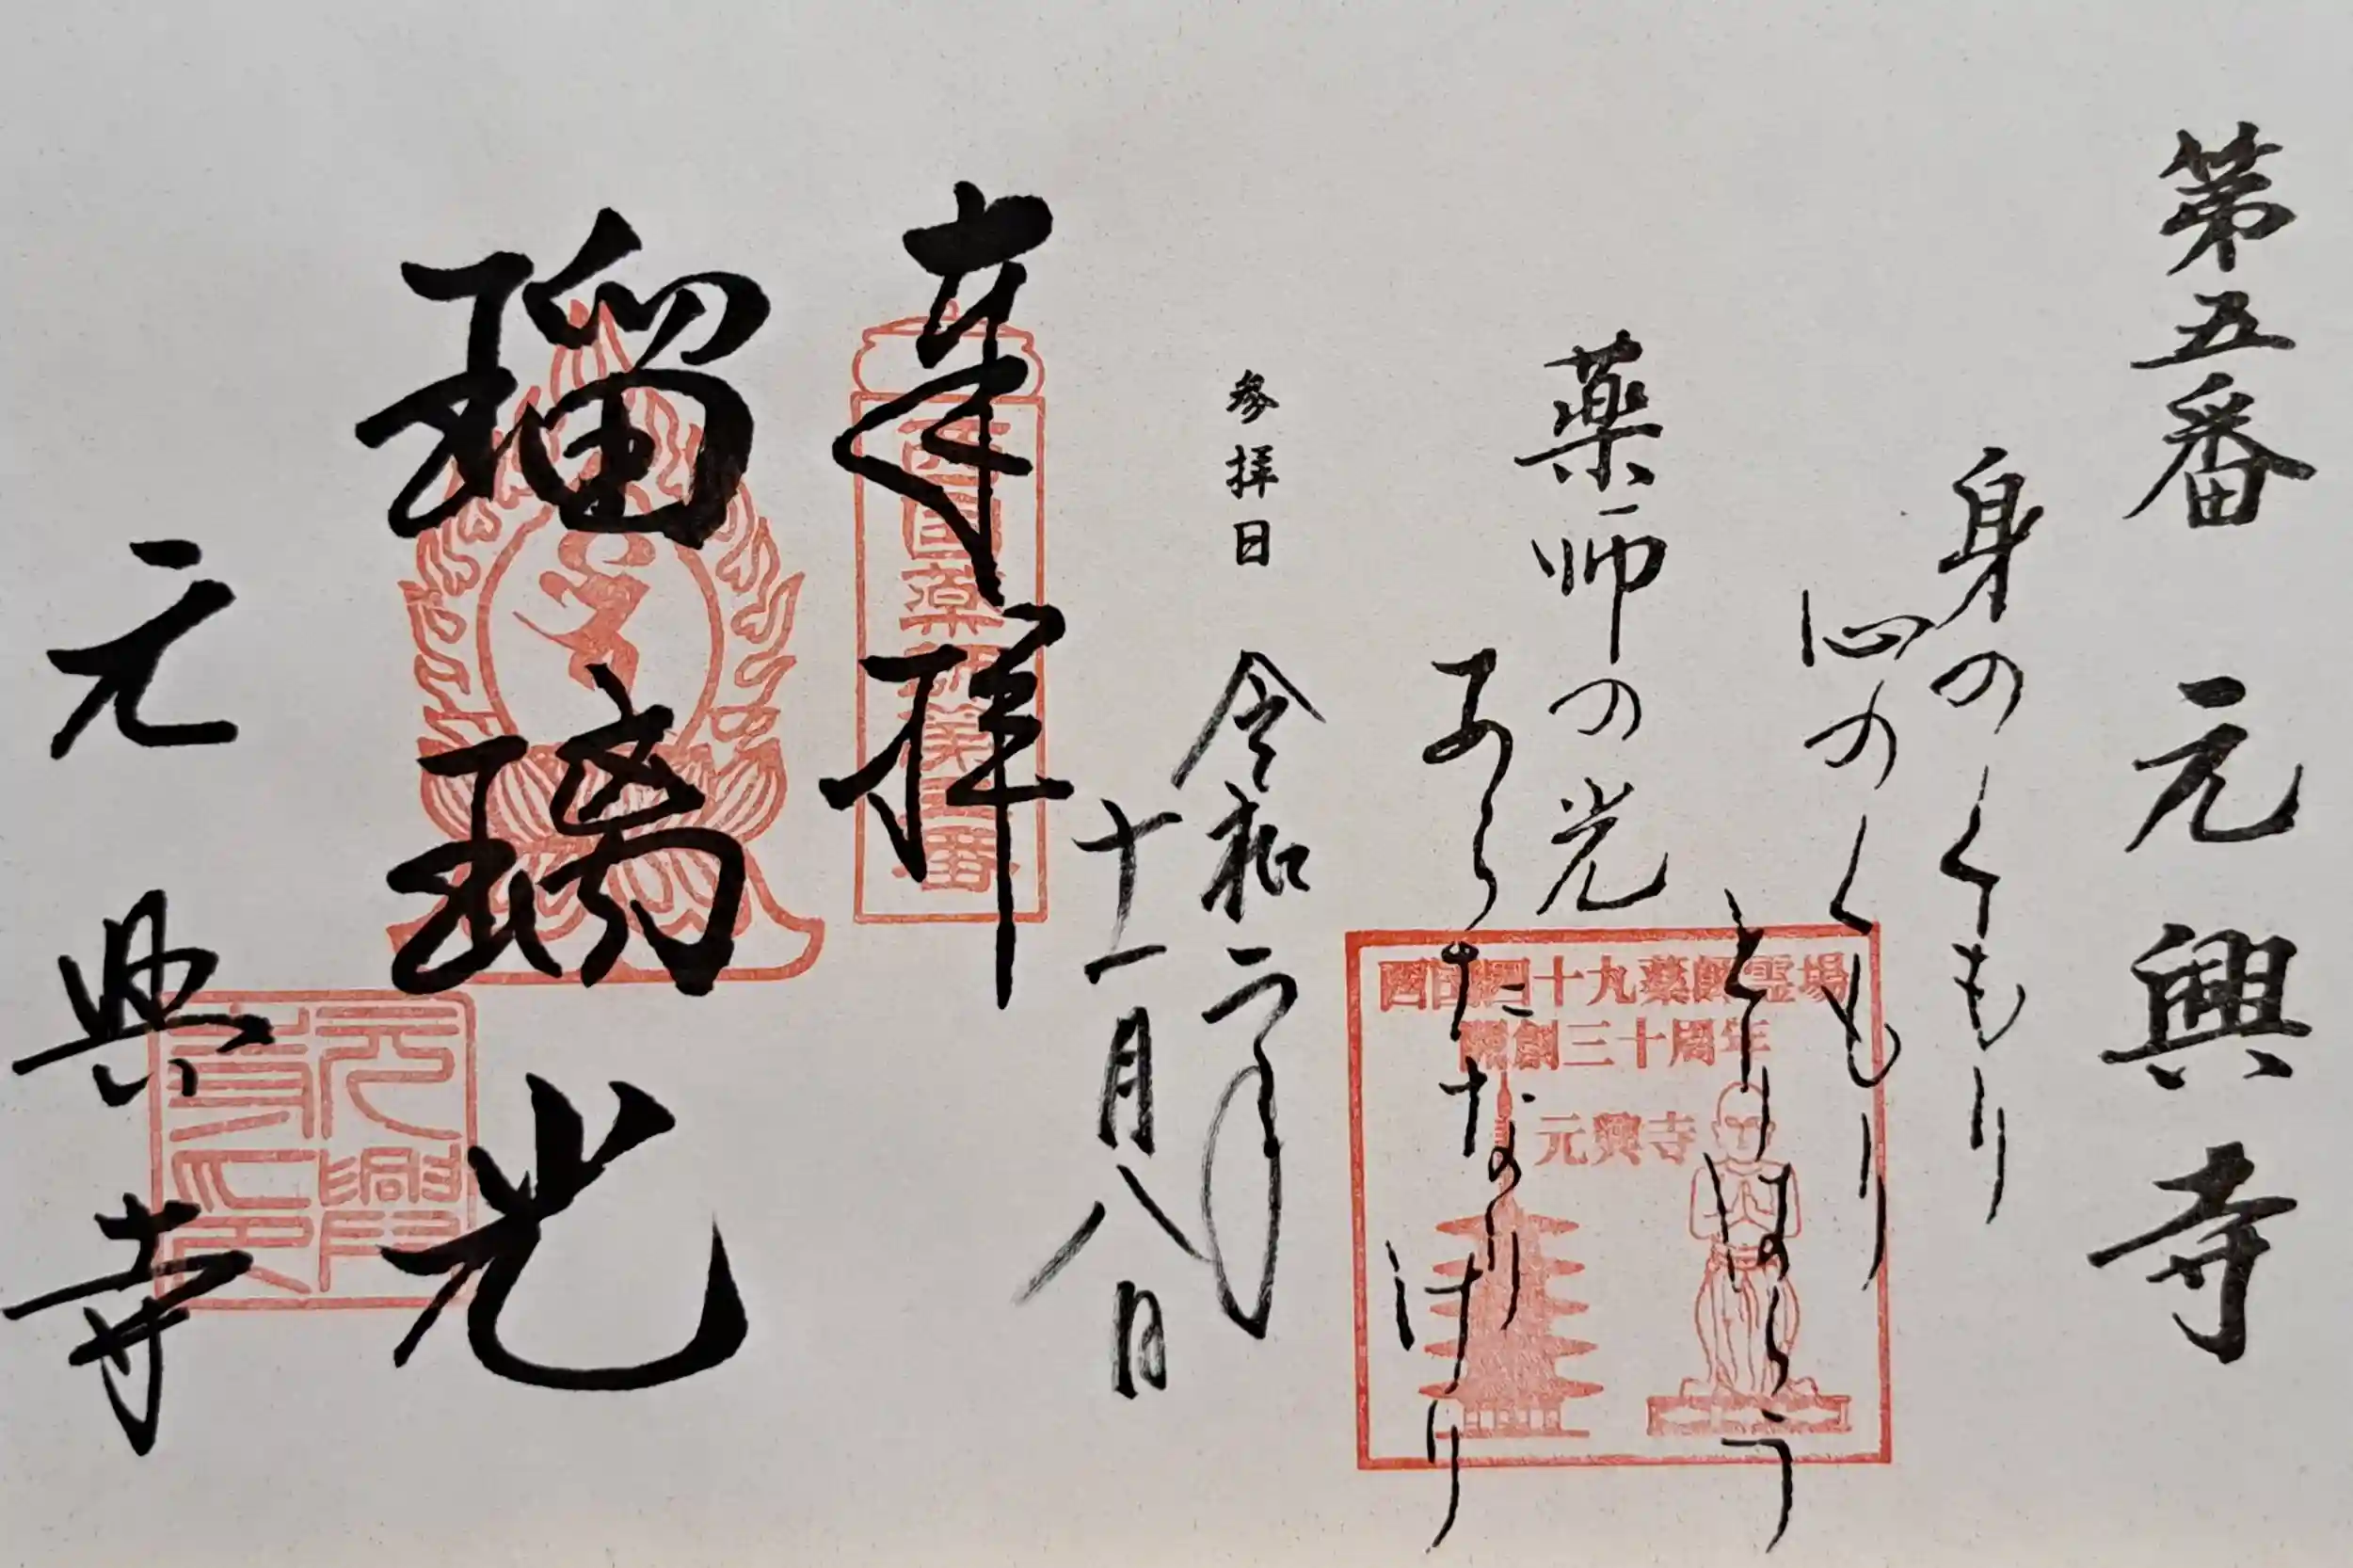 第五番 元興寺
身のくもり
心のくもり
とりはらう
薬師の光
あらたなりけり
参拝日 令和二年
十一月八日
奉拝
西国薬師第五番
瑠璃光
元興寺
西国四十九薬師霊場
開創三十周年
元興寺
元興寺印